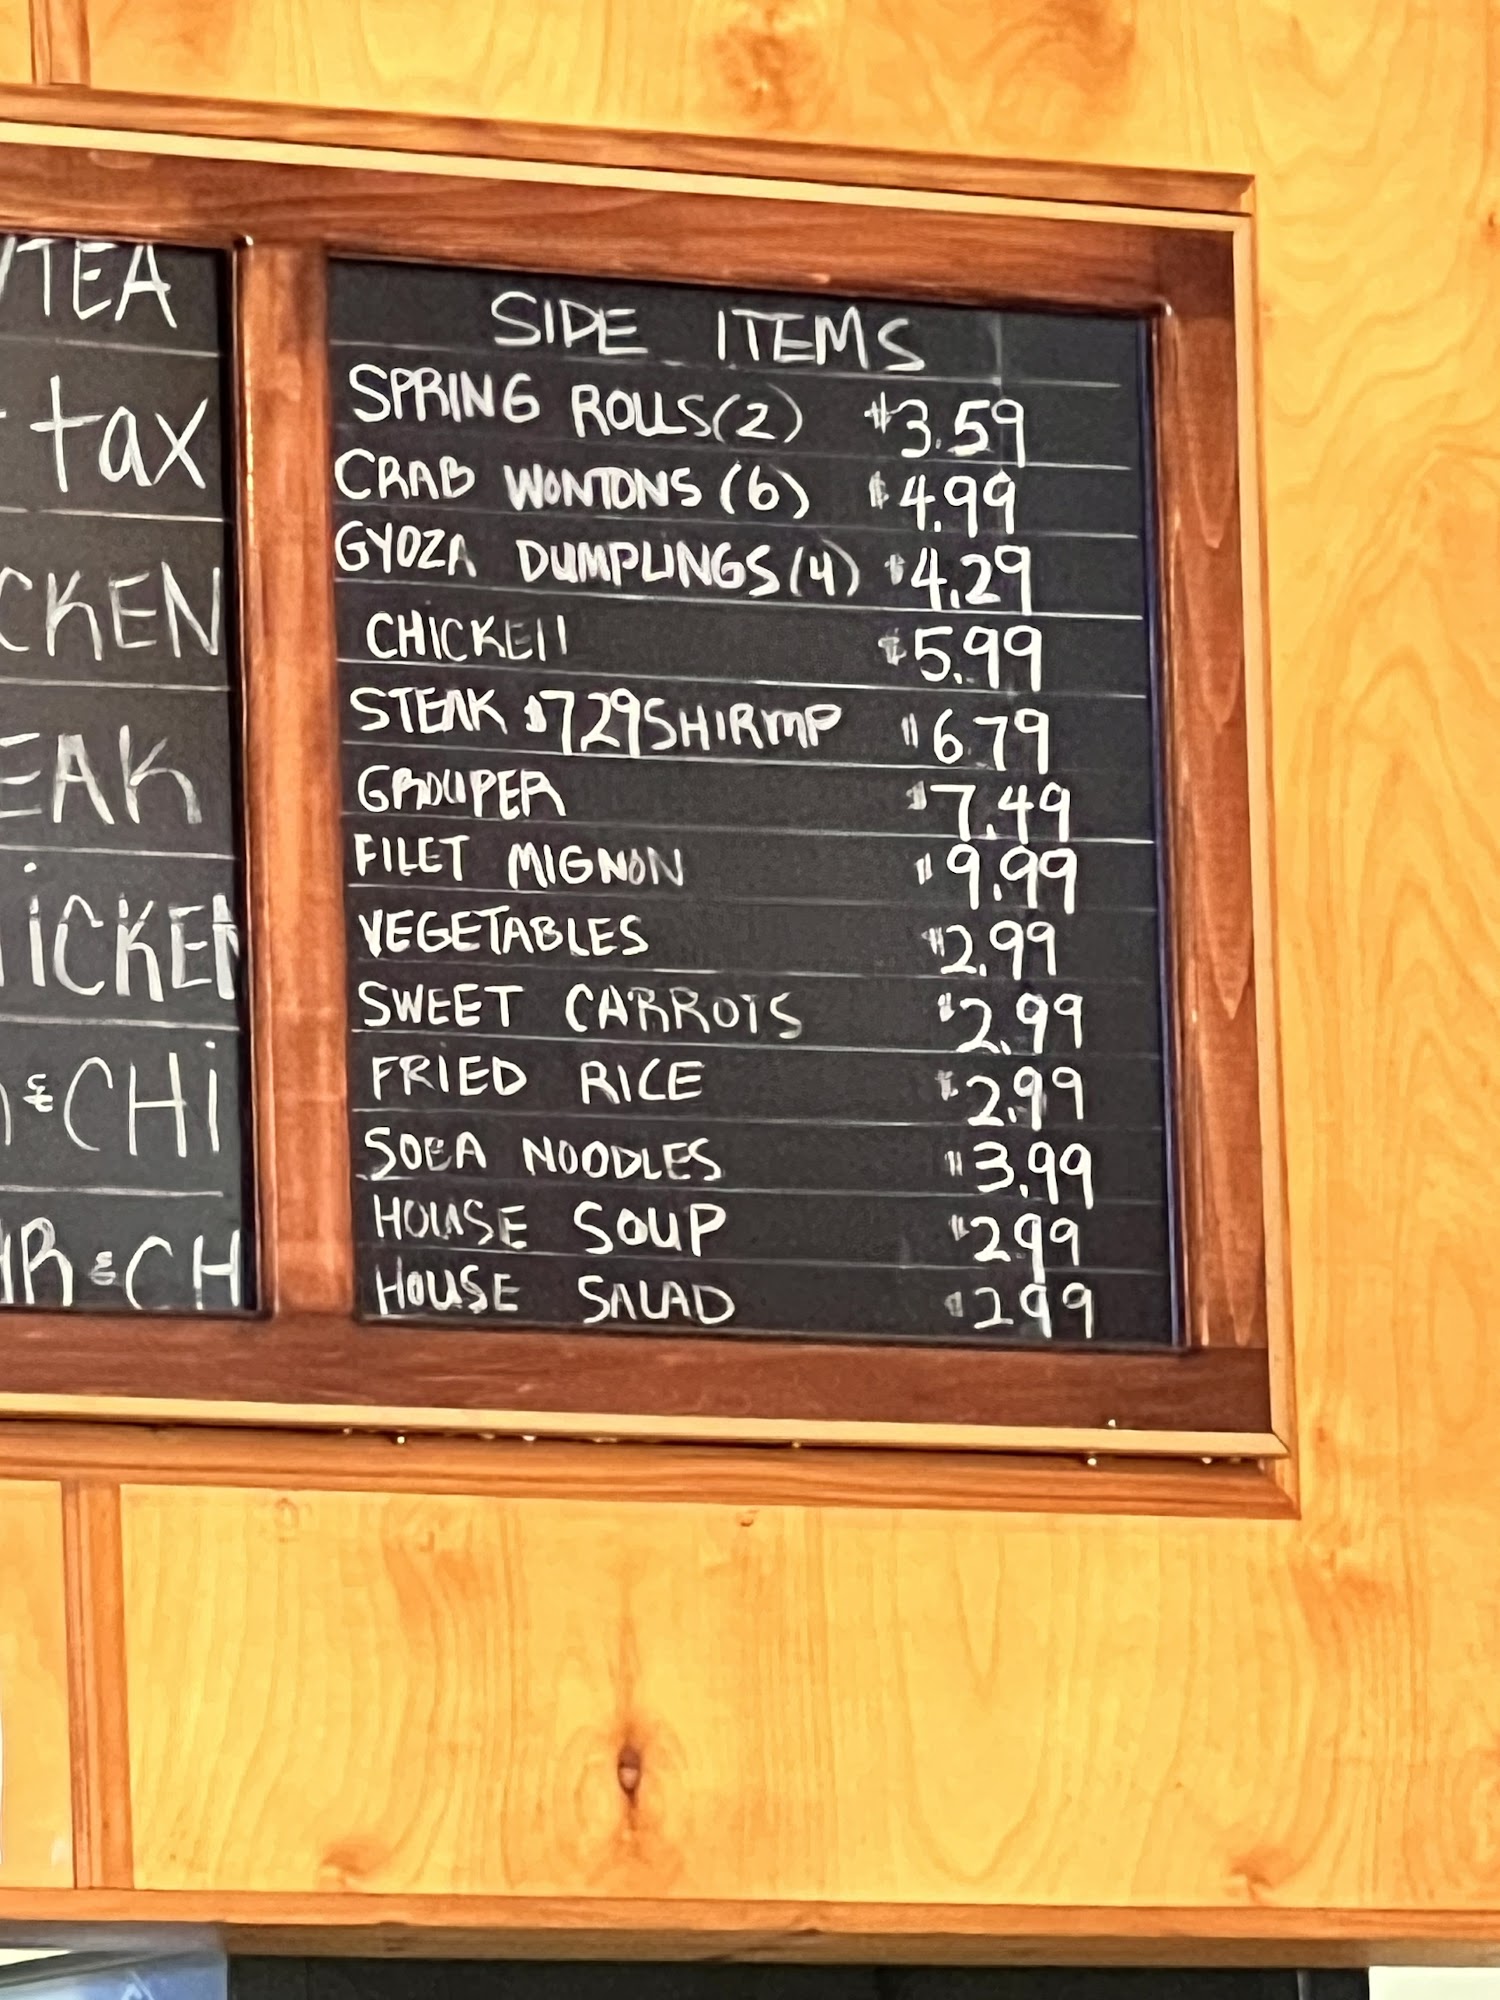 TEA
tax
CKEN
EAK
iCKEN
& CHi
R & CH
SIDE ITEMS
SPRING ROLLS (2) $3.59
CRAB WONTONS (6) $4.99
GYOZA DUMPLINGS (4) $4.29
CHICKEN $5.99
STEAK $729 SHIRMP $679
GROUPER $7.49
FILET MIGNON $9.99
VEGETABLES $2.99
SWEET CARROTS $2.99
FRIED RICE $2.99
SOBA NOODLES $3.99
HOUSE SOUP $299
HOUSE SALAD $299